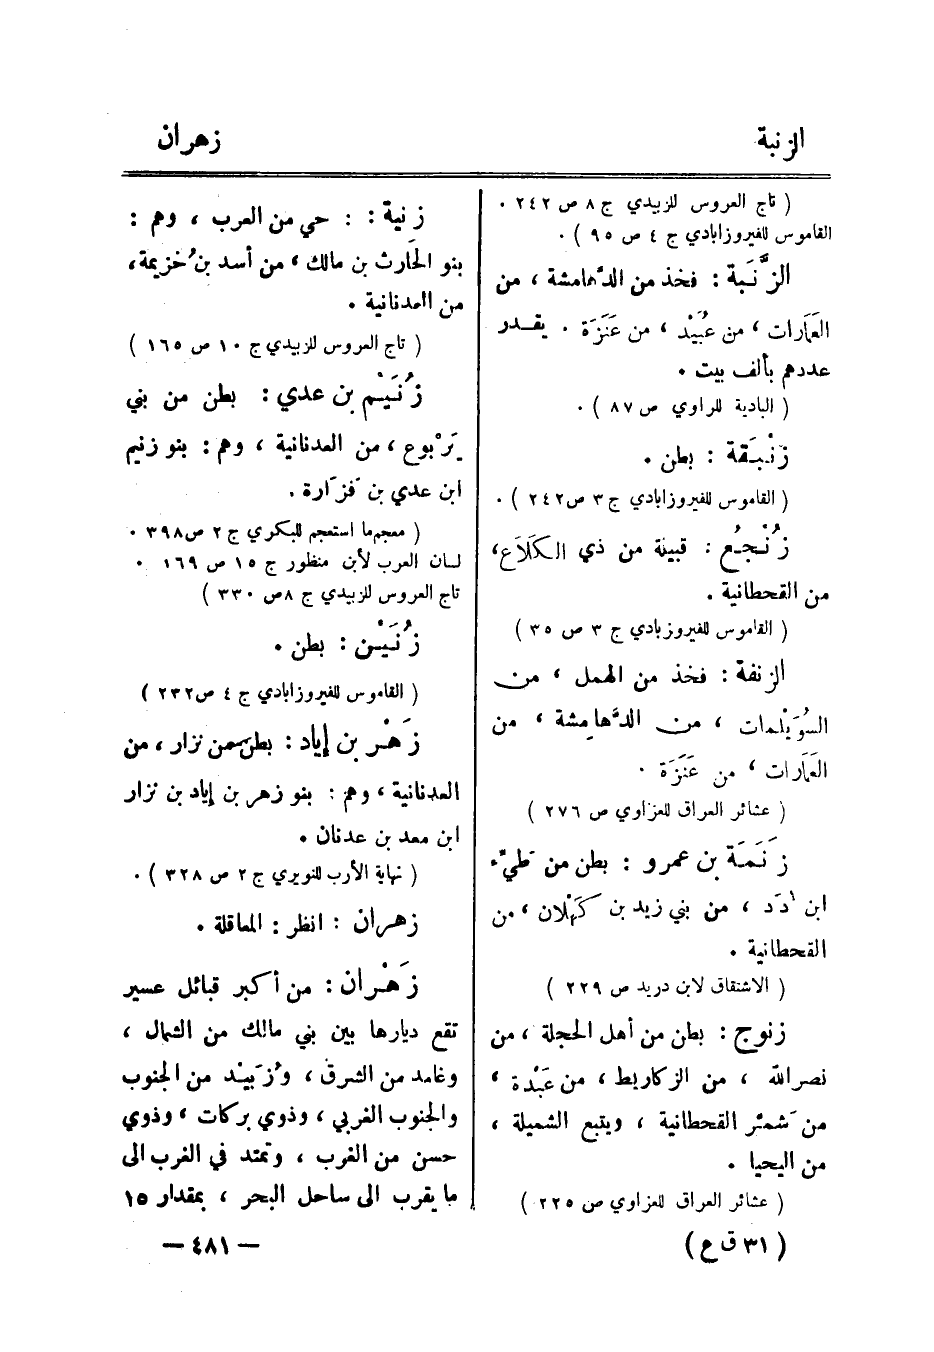 الزنبة
زهران
( تاج العروس للزبيدي ج ٨ ص ٢٤٢ .
القاموس للفيروزابادي ج ٤ ص ٩٥ ) .
الزَّنَبة : فخذ من الدَّهامشة ، من
العَمَارات ، من عُبَيْد ، من عَنَزَة . يقدر
عددهم بألف بيت .
( البادية للراوي ص ٨٧ ) .
زَنْبَقة : بطن .
( القاموس للفيروزابادي ج ٣ ص ٢٤٢ ) .
زُنْجُع : قبيلة من ذي الكَلَاع ،
من القحطانية .
( القاموس للفيروزبادي ج ٣ ص ٣٥ )
الزنفة : فخذ من الهمل ، من
السُوَيْلمات ، من الدَّهامِشة ، من
العَمَارات ، من عَنَزَة .
( عشائر العراق للعزاوي ص ٢٧٦ )
زَنَمَة بن عمرو : بطن من طَيّء
ابن أدَد ، من بني زيد بن كَهْلان ، من
القحطانية .
( الاشتقاق لابن دريد ص ٢٢٩ )
زنوج : بطن من أهل الحجلة ، من
نصر الله ، من الزكاريط ، من عَبْدة ،
من شَمَّر القحطانية ، ويتبع الشميلة ،
من اليحيا .
( عشائر العراق للعزاوي ص ٢٢٥ )
زنية : : حي من العرب ، وهم :
بنو الحَارث بن مالك ، من أسد بن خُزيمة ،
من العدنانية .
( تاج العروس للزبيدي ج ١٠ ص ١٦٥ )
زُنَيْم بن عدي : بطن من بني
يَرْبوع ، من العدنانية ، وهم : بنو زنيم
ابن عدي بن فَزَارة .
( معجم ما استعجم للبكري ج ٢ ص ٣٩٨ .
لسان العرب لأبن منظور ج ١٥ ص ١٦٩ .
تاج العروس للزبيدي ج ٨ ص ٣٣٠ )
زُنَيْن : بطن .
( القاموس للفيروزابادي ج ٤ ص ٢٣٢ )
زَهْر بن إياد : بطن من نزار ، من
العدنانية ، وهم : بنو زهر بن إياد بن نزار
ابن معد بن عدنان .
( نهاية الأرب للنويري ج ٢ ص ٣٢٨ ) .
زهران : انظر : المعاقلة .
زَهْران : من أكبر قبائل عسير
تقع ديارها بين بني مالك من الشمال ،
وغامد من الشرق ، وزُبَيْد من الجنوب
والجنوب الغربي ، وذوي بركات ، وذوي
حسن من الغرب ، وتمتد في الغرب الى
ما يقرب الى ساحل البحر ، بمقدار ١٥
( ٣١ ق ع )
— ٤٨١ —